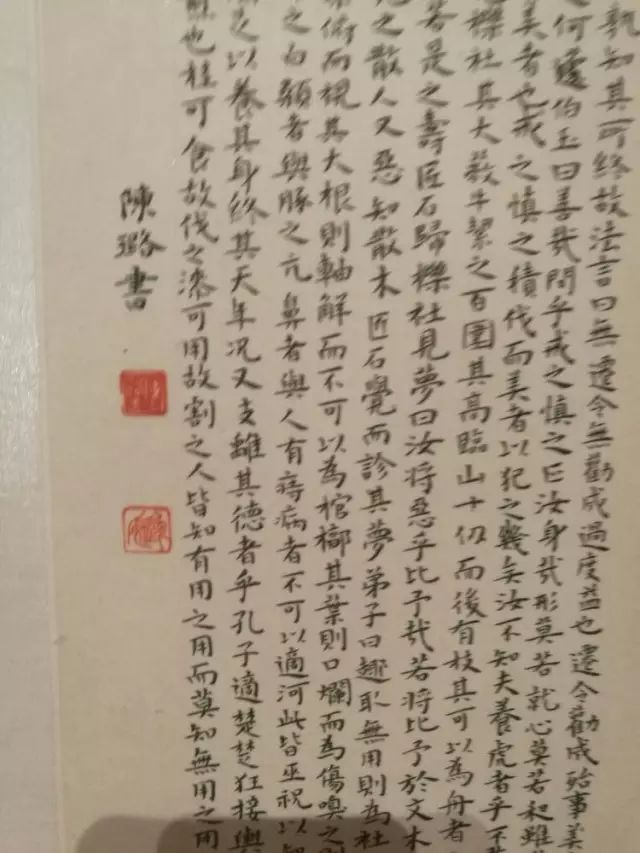 孰知其可終故法言曰無遷令無勸成過度益也遷令勸成殆事美
何蘧伯玉曰善哉問乎戒之慎之正汝身哉形莫若就心莫若和雖
美者也戒之慎之積伐而美者以犯之幾矣汝不知夫養虎者乎不
櫟社其大蔽牛絜之百圍其高臨山十仞而後有枝其可以為舟者
若是之壽匠石歸櫟社見夢曰汝將惡乎比予哉若將比予於文木
之散人又惡知散木匠石覺而診其夢弟子曰趣取無用則為社
俯而視其大根則軸解而不可以為棺槨其葉則口爛而為傷嗅之則
之白顙者與豚之亢鼻者與人有痔病者不可以適河此皆巫祝以知
之以養其身終其天年况又支離其德者乎孔子適楚楚狂接輿
也桂可食故伐之漆可用故割之人皆知有用之用而莫知無用之用
陳璐書